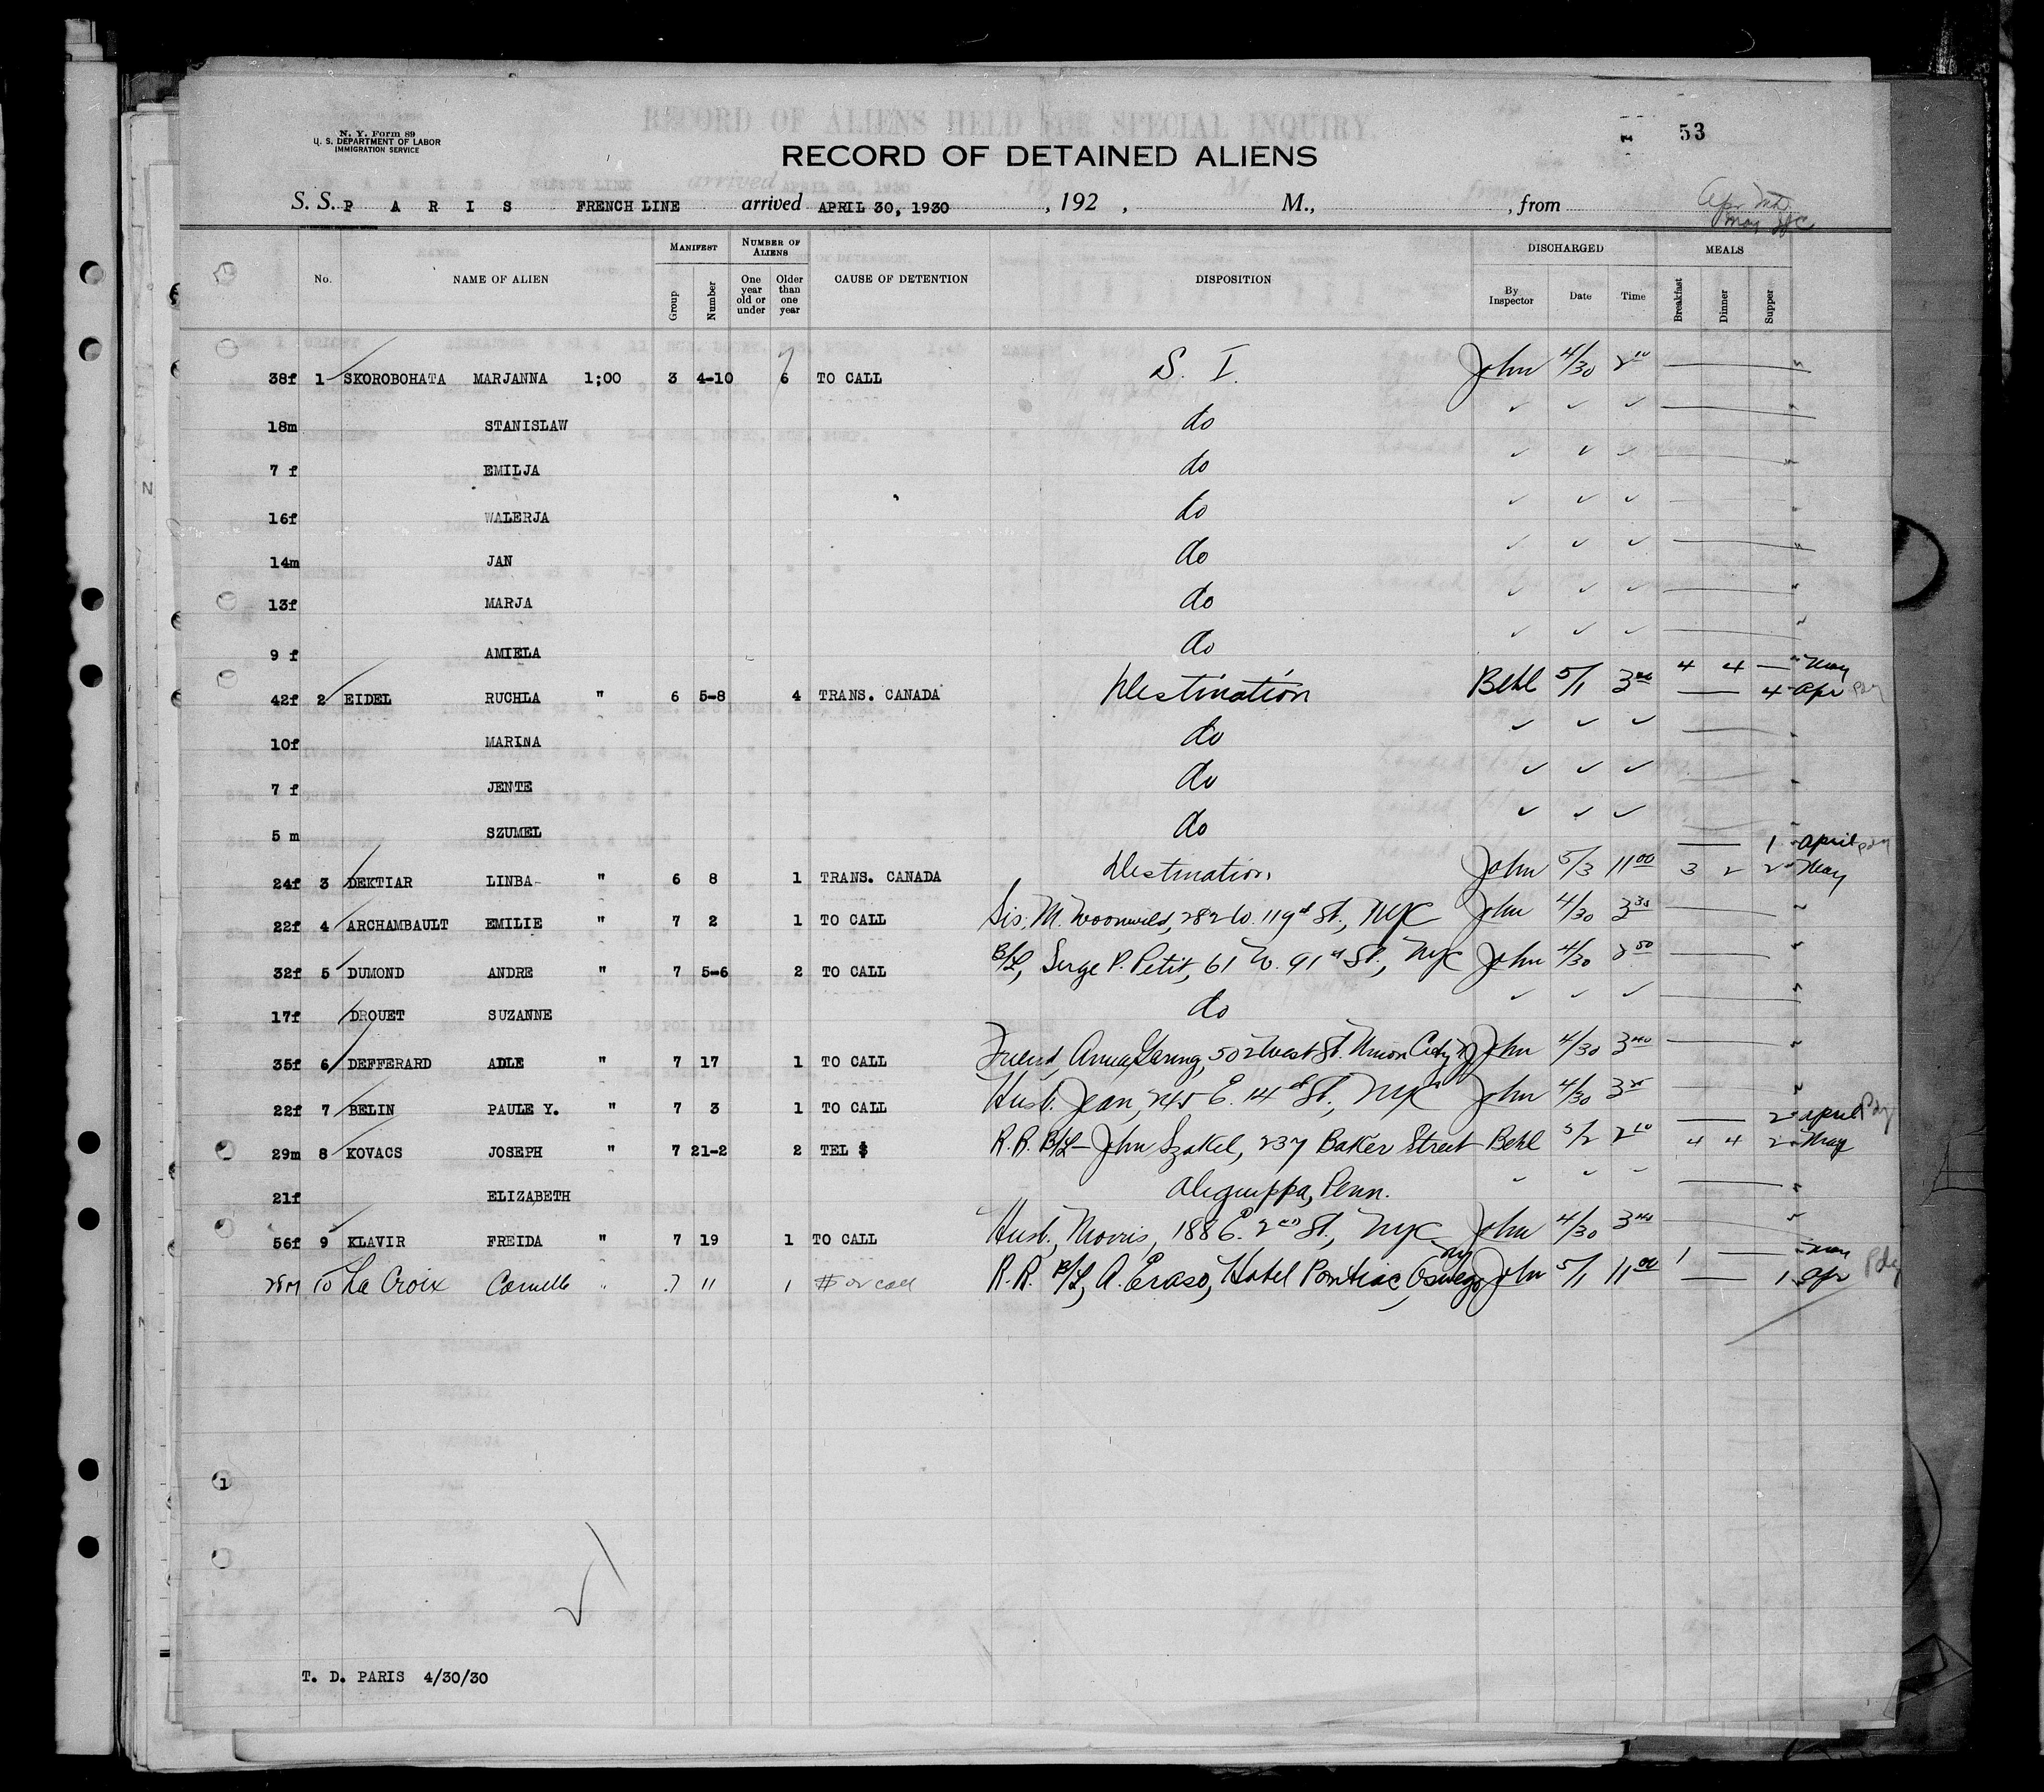 N. Y. Form 89
U. S. DEPARTMENT OF LABOR
IMMIGRATION SERVICE
RECORD OF ALIENS HELD FOR SPECIAL INQUIRY.
53
RECORD OF DETAINED ALIENS
S. S. P A R I S FRENCH LINE arrived APRIL 30, 1930 , 192 , M., , from
No. NAME OF ALIEN MANIFEST Group Number NUMBER OF ALIENS One year old or under Older than one year CAUSE OF DETENTION DISPOSITION DISCHARGED By Inspector Date Time MEALS Breakfast Dinner Supper
38f 1 SKOROBOHATA MARJANNA 1;00 3 4-10 6 7 TO CALL S. I. John 4/30 2 10 "
18m STANISLAW do ✓ ✓ ✓ "
7 f EMILJA do ✓ ✓ ✓ "
16f WALERJA do ✓ ✓ ✓ "
14m JAN do ✓ ✓ ✓ "
13f MARJA do ✓ ✓ ✓ "
9 f AMIELA do ✓ ✓ ✓ "
4 4 — May
42f 2 EIDEL RUCHLA " 6 5-8 4 TRANS. CANADA Destination Behl 5/1 3 00 — 4 Apr Pdy
10f MARINA do ✓ ✓ ✓ "
7 f JENTE do ✓ ✓ ✓ "
5 m SZUMEL do ✓ ✓ ✓ "
— 1 April Pdy
24f 3 DEKTIAR LINBA " 6 8 1 TRANS. CANADA Destination John 5/3 11 00 3 2 2 May
22f 4 ARCHAMBAULT EMILIE " 7 2 1 TO CALL Sis. M. 282 W. 119th St., NYC John 4/30 3 "
32f 5 DUMOND ANDRE " 7 5-6 2 TO CALL B/L, Serge P. Petit, 61 W. 91st St., NYC John 4/30 2 50 "
17f DROUET SUZANNE do ✓ ✓ ✓ "
35f 6 DEFFERARD ADLE " 7 17 1 TO CALL Friend, Anna 502 West St. Union City NJ John 4/30 3 40 "
22f 7 BELIN PAULE Y. " 7 3 1 TO CALL Husb. Jean, 245 E. 14th St., NYC John 4/30 3 "
— 2 April Pdy
29m 8 KOVACS JOSEPH " 7 21-2 2 TEL $ R.R. B/L - John Szakel, 237 Baker Street Behl 5/2 2 10 4 4 2 May
21f ELIZABETH Aliquippa, Penn. "
56f 9 KLAVIR FREIDA " 7 19 1 TO CALL Husb, Morris, 188 E. 2nd St., NYC John 4/30 3 "
NY 1 — May
28m 10 La Croix " 7 11 1 $ or call R.R. B/L, A. Eraso, Hotel Pontiac, Oswego John 5/1 11 00 — 1 Apr Pdy
1
T. D. PARIS 4/30/30